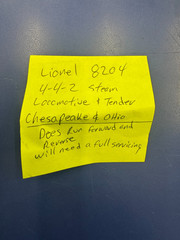 Lionel 8204
4-4-2 Steam
Locomotive & Tender
Chesapeake & Ohio
Does Run Forward and
Reverse
will need a full servicing